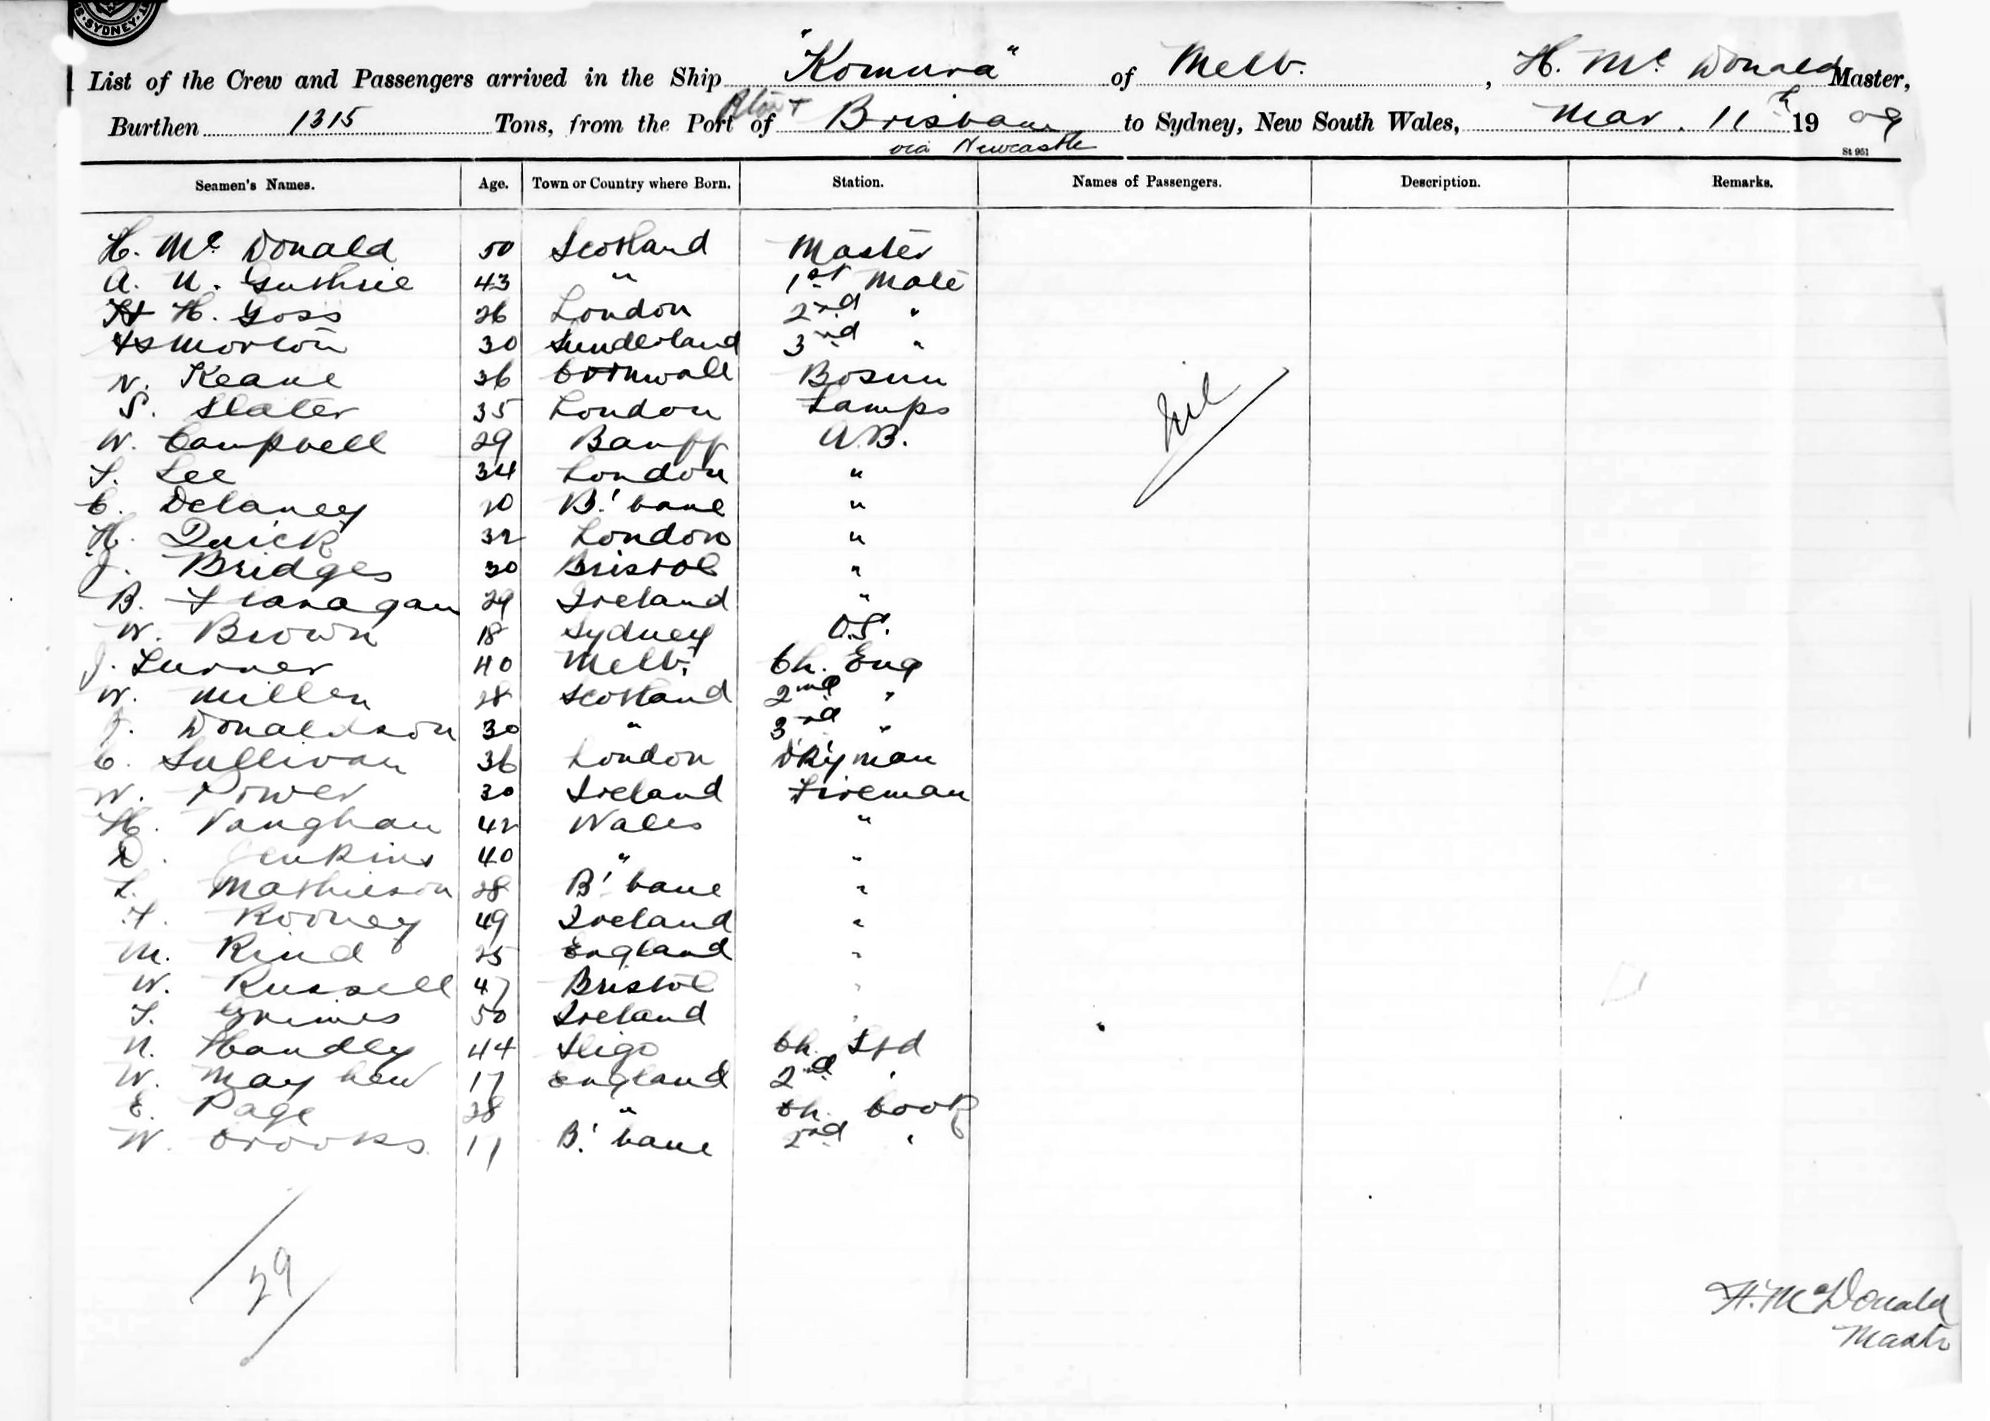 SYDNEY
List of the Crew and Passengers arrived in the Ship "Komura" of Melb. , H. Mc Donald Master,
Burthen 1315 Tons, from the Port of Brisbane to Sydney, New South Wales, Mar. 11th 1909
via Newcastle
St 951
Seamen's Names. Age. Town or Country where Born. Station. Names of Passengers. Description. Remarks.
H. Mc Donald 50 Scotland Master
A. N. Guthrie 43 " 1st Mate
H. Goss 26 London 2nd "
Morton 30 Sunderland 3rd "
N. Keane 36 Cornwall Bosun
S. Slater 35 London Lamps
W. Campbell 29 Banff A.B.
T. Lee 34 London "
C. Delaney 20 B'bane "
H. Quick 32 London "
J. Bridges 30 Bristol "
B. Flanagan 29 Ireland "
W. Brown 18 Sydney O.S.
J. Turner 40 Melb. Ch. Eng
W. Millen 28 Scotland 2nd "
J. Donaldson 30 " 3rd "
C. Sullivan 36 London D'kyman
W. Power 30 Ireland Fireman
H. Vaughan 42 Wales "
D. Jenkins 40 " "
L. Mathieson 28 B'bane "
F. Rooney 49 Ireland "
M. Rind 25 England "
W. Russell 47 Bristol "
T. Grimes 50 Ireland "
N. Handley 44 Sligo Ch. Std
W. Mayhew 17 England 2nd "
E. Page 28 " Ch. Cook
W. Crooks 17 B'bane 2nd "
Nil
29
H. McDonald
Master